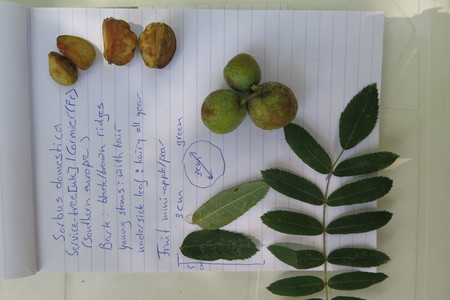 Sorbus domestica
Service-tree [uk] / Cormier (Fr)
(Southern europe)
Bark: black/brown ridges
young stems: with hair
underside leaf: hairy all year
Fruit mini-apple/pear
3 cm green